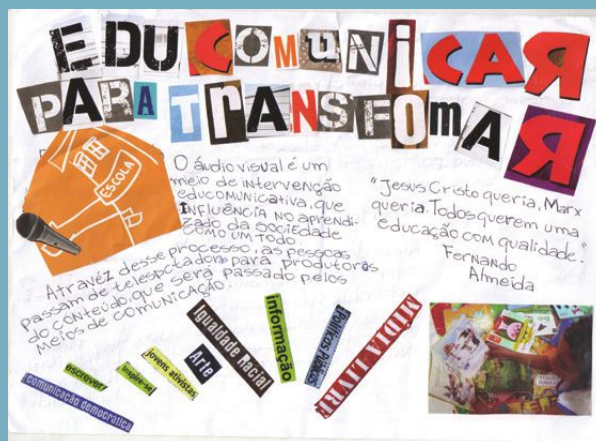 EDUCOMUNICAR
PARA TRANSFOMAR
ESCOLA
O áudio visual é um
meio de intervenção
educomunicativa, que
INFLUÊNCIA NO aprendi-
zado da sociedade
COMO UM TODO.
Atravéz desse processo, as pessoas
passam de telespctadoras para produtoras
do conteúdo, que será passado pelos
meios de comunicação.
"Jesus Cristo queria, Marx
queria. Todos querem uma
educação com qualidade."
Fernando
Almeida
comunicação democrática
escrever!
inspire-se
jovens ativistas
Arte
Igualdade Racial
informação
Políticas Públicas
MÍDIA LIVRE